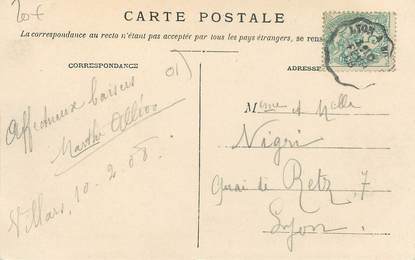 20€
CARTE POSTALE
La correspondance au recto n'étant pas acceptée par tous les pays étrangers, se rens
CORRESPONDANCE
ADRESSE
01)
Affectueux baisers
Marthe
Villars, 10-2-08.
LYON A
Mme et Melle
Nigri
Quai de Retz, 7
Lyon